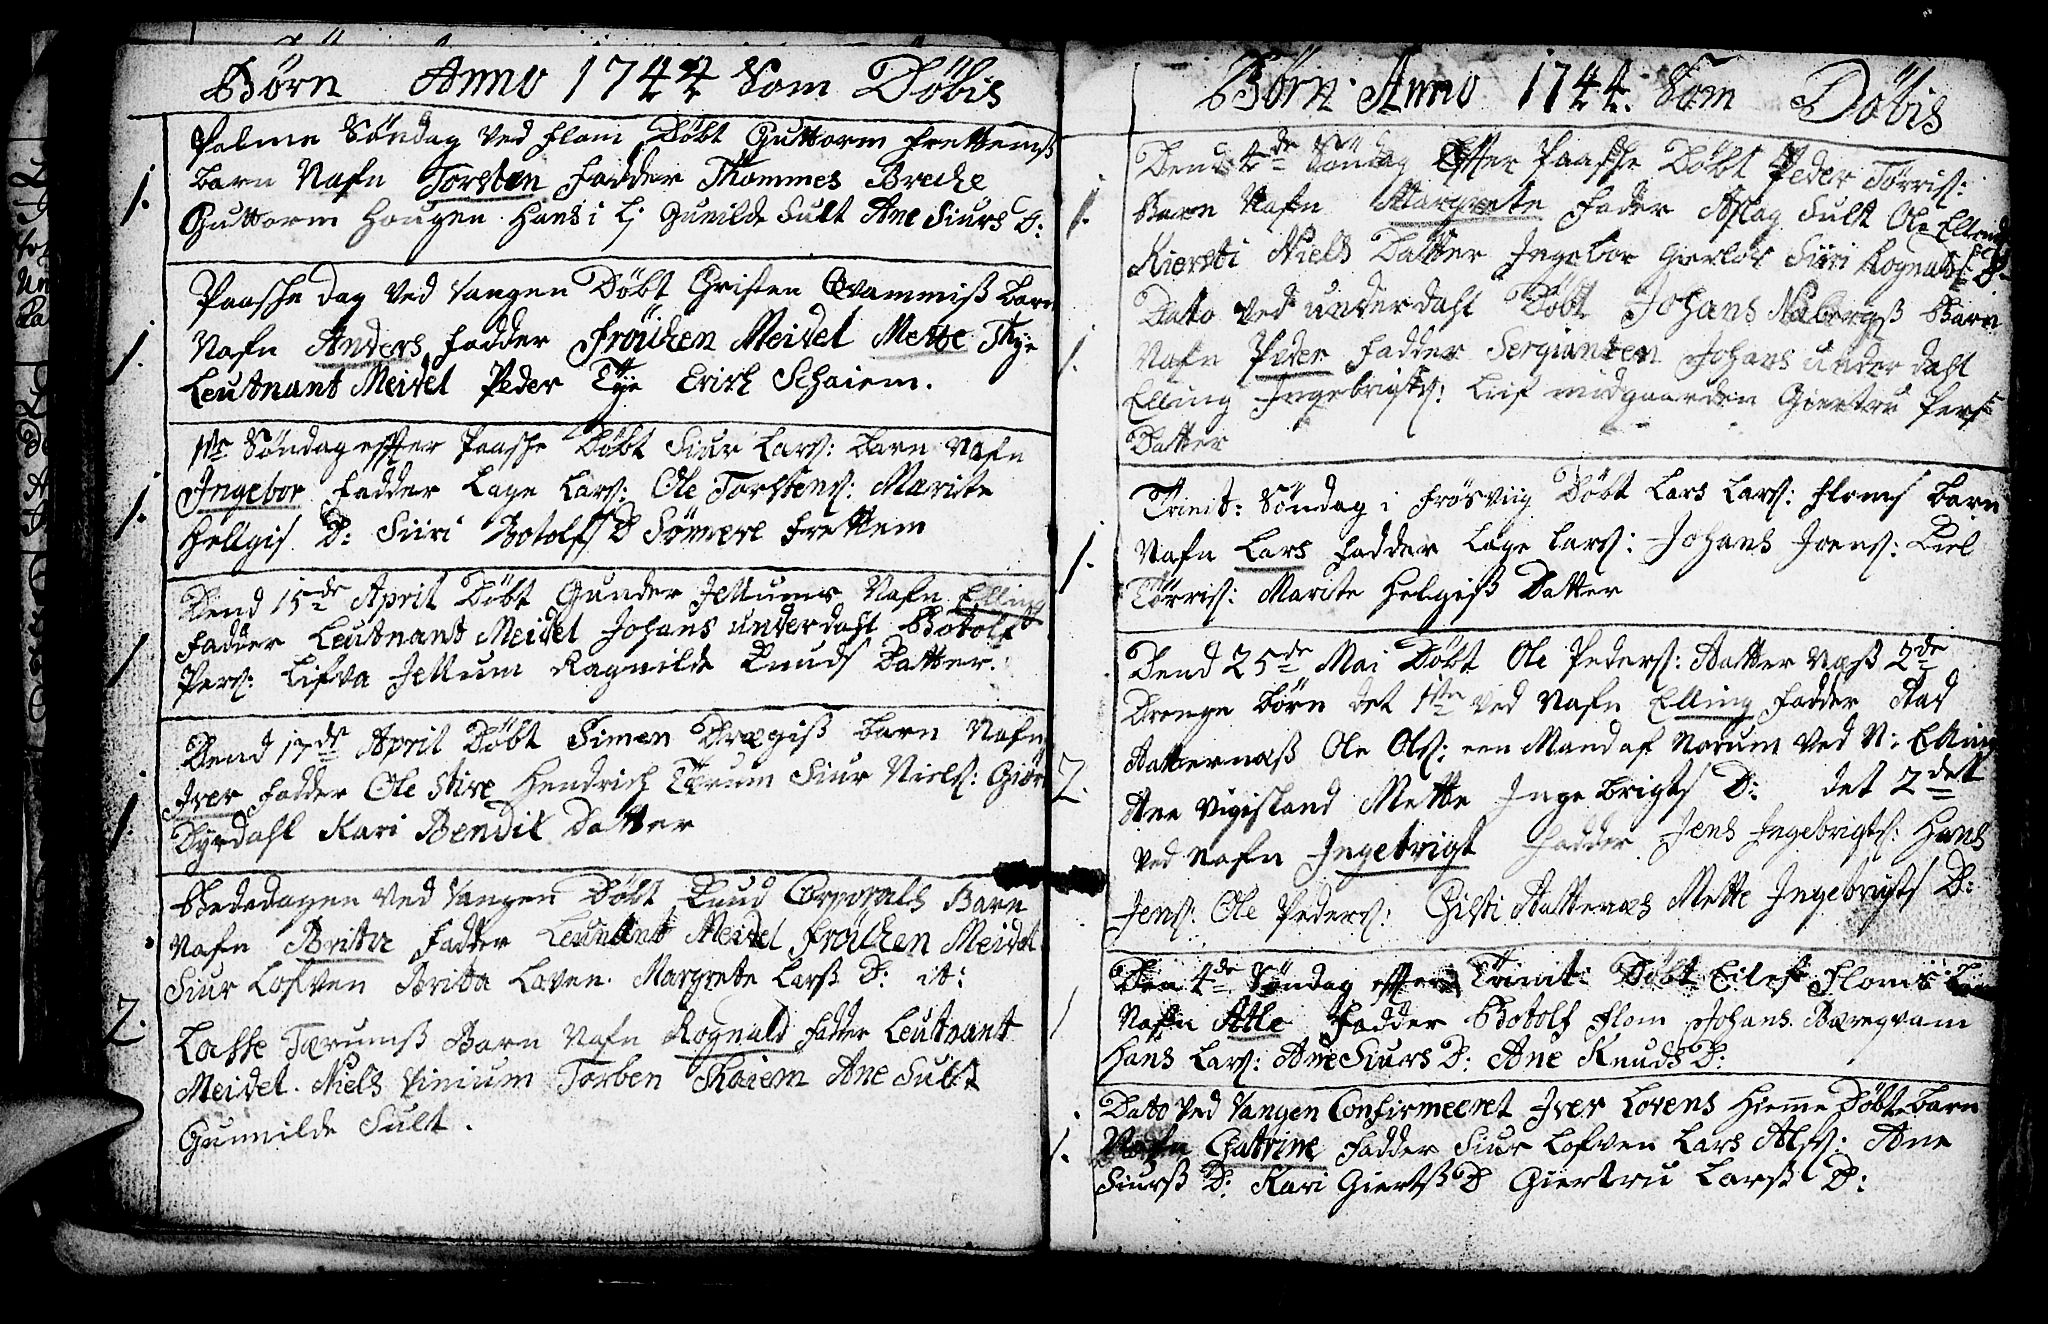 Børn Anno 1744 Som Döbis
Palme Söndag ved Flom Döbt Guttorm Frettems
1. barn Nafn Torsten Fadder Thommes Breche
Guttorm Hougen Hans i L: Gunilde Sult Ane Siurs D:
Paasche dag ved Vangen Döbt Christen Qvammiß barn
1. Nafn Anders Fadder Fröiken Meidel Mette Thye
Leutnant Meidel Peder Tye Erich Schaiem.
1ste Söndag effter Paasche Döbt Siur Larß: barn Nafn
1. Ingebor Fadder Lage Larß: Ole Torstenß: Marite
Hellgis D: Siiri Botolfs D Frettem
Dend 15de April Döbt Gunder Jellums Nafn Elling
1 Fadder Leutnant Meidel Johans Underdahl Botolf
Perß: Lifva Jellum Ragnilde Knuds Datter.
Dend 17de April Döbt Simen Drægiß barn Nafn
1. Iver Fadder Ole Stive Hendrich Tærum Siur Nielß: Giör
Dyrdahl Kari Bendix Datter
Bededagen ved Vangen Döbt Knud Corporals Barn
Nafn Britta Fadder Leutnant Meidel Fröiken Meidel
Siur Lofven Britta Loven. Margrete Larß D: it:
2. Lasse Tærumß Barn Nafn Rognald Fadder Leutnant
Meidel. Niels Vinium Torben Skaiem Ane Sult
Gunnilde Sult.
Børn Anno 1744. Som Döbis
Dend 4de Söndag Efter Paasche Döbt Peder Törriß:
1. Barn Nafn Margrete Fader Aslag Sult Ole
Kiersti Niels Datter Ingebor Siiri Rognalds D:
Dato ved Underdahl Döbt Johans Barn
1. Nafn Peder Fadder Sergianten Johans Underdahl
Elling Ingebrigtß: Lif midgaarden Giertru Pers
Datter
Trinit: Söndag i Frösviig Döbt Lars Larß: Floms barn
1. Nafn Lars Fadder Lage Larß: Johans Joenß: Kiel
Törriß: Marite Helgiß Datter
Dend 25de Mai Döbt Ole Pederß: Aatter Næß 2de
Drenge Börn det 1ste ved Nafn Elling Fadder Aad
2. Aatternæß Ole Olß: een Mand af Norum ved N: Elling
Ane Vigisland Mette Ingebrigts D: det 2det
ved Nafn Ingebrigt Fadder Jens Ingebrigtß: Hans
Jenß: Ole Pederß: Aatternæs Mette Ingebrigts D:
Den 4de Söndag effter Trinit: Döbt Eilef Floms barn
1 Nafn Atle Fadder Botolf Flom Johans Bæreqvam
Hans Larß: Ane Siurs D: Ane Knuds D:
Dato ved Vangen Confirmeeret Iver Lovens Hieme Döbte barn
1. Nafn Chatrine Fadder Siur Lofven Lars Ane
Siurß D: Kari Giertß D Giertru Larß D: